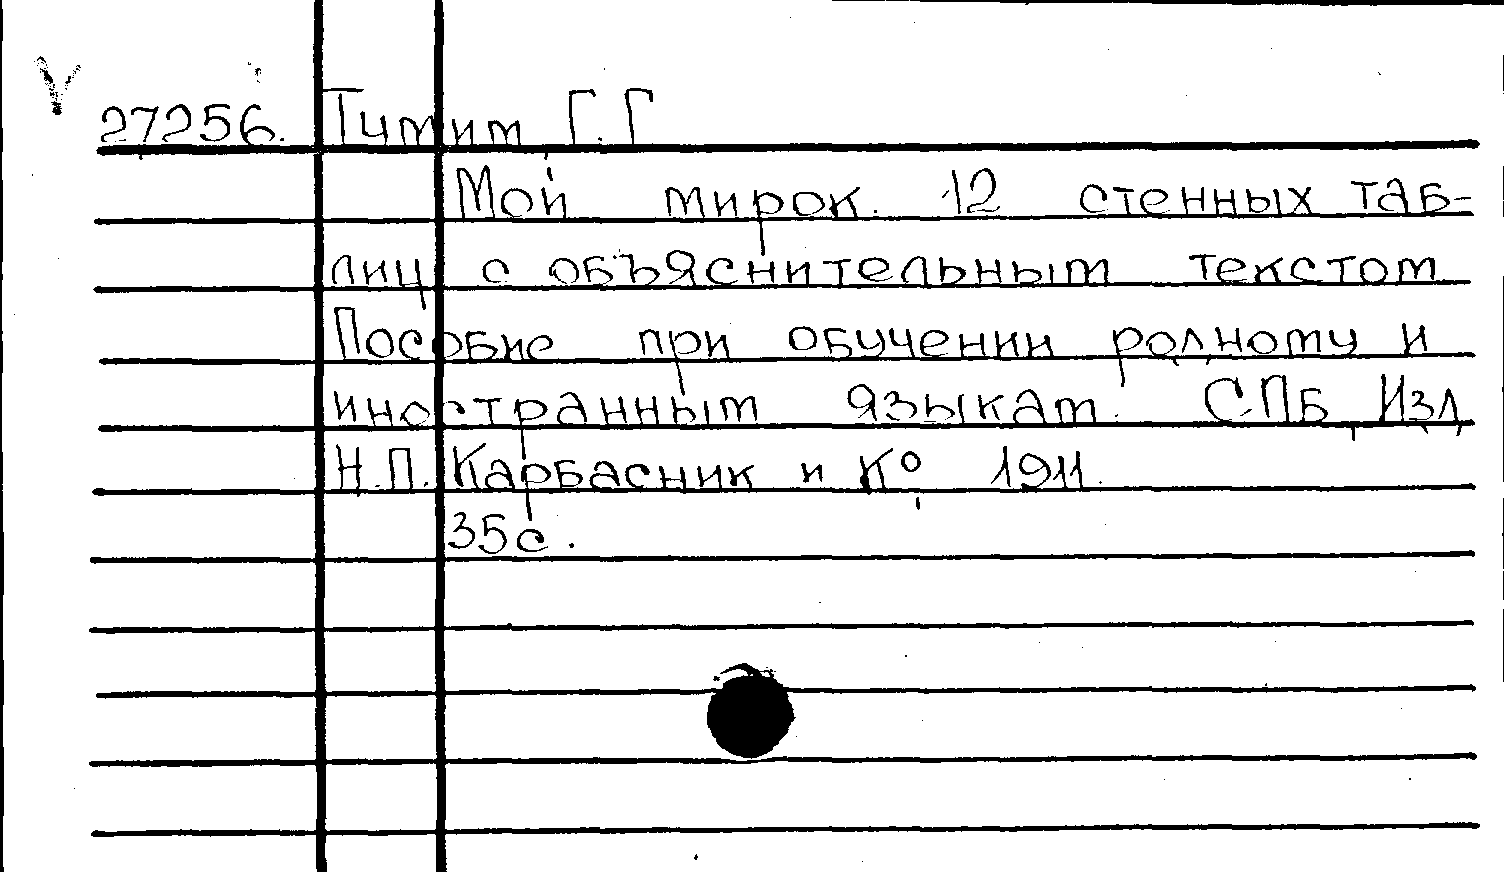 27256. Тимим, Г.Г
Мой мирок. 12 стенных таб-
лиц с объяснительным текстом
Пособие при обучении родному и
иностранным языкам. СПБ, Изд
Н.П. Карбасник и К° 1911.
35с.